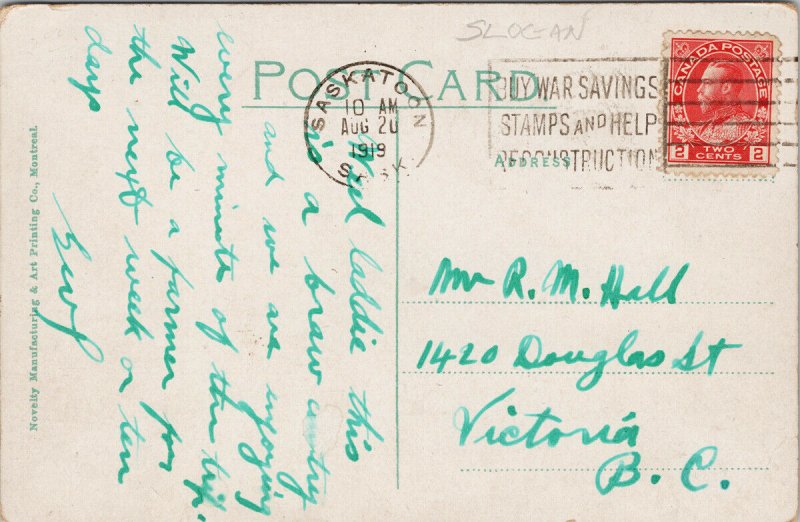 SLOGAN
POST CARD.
SASKATOON
10 AM
AUG 20
1919
SASK.
BUY WAR SAVINGS
STAMPS AND HELP
RECONSTRUCTION
CANADA POSTAGE
2 TWO CENTS 2
ADDRESS
Mr R. M. Hall
1420 Douglas St
Victoria
B. C.
Well laddie this
is a braw cuntry
and we are enjoying
every minute of the trip.
Will be a farmer for
the next week or ten
days
Novelty Manufacturing & Art Printing Co., Montreal.